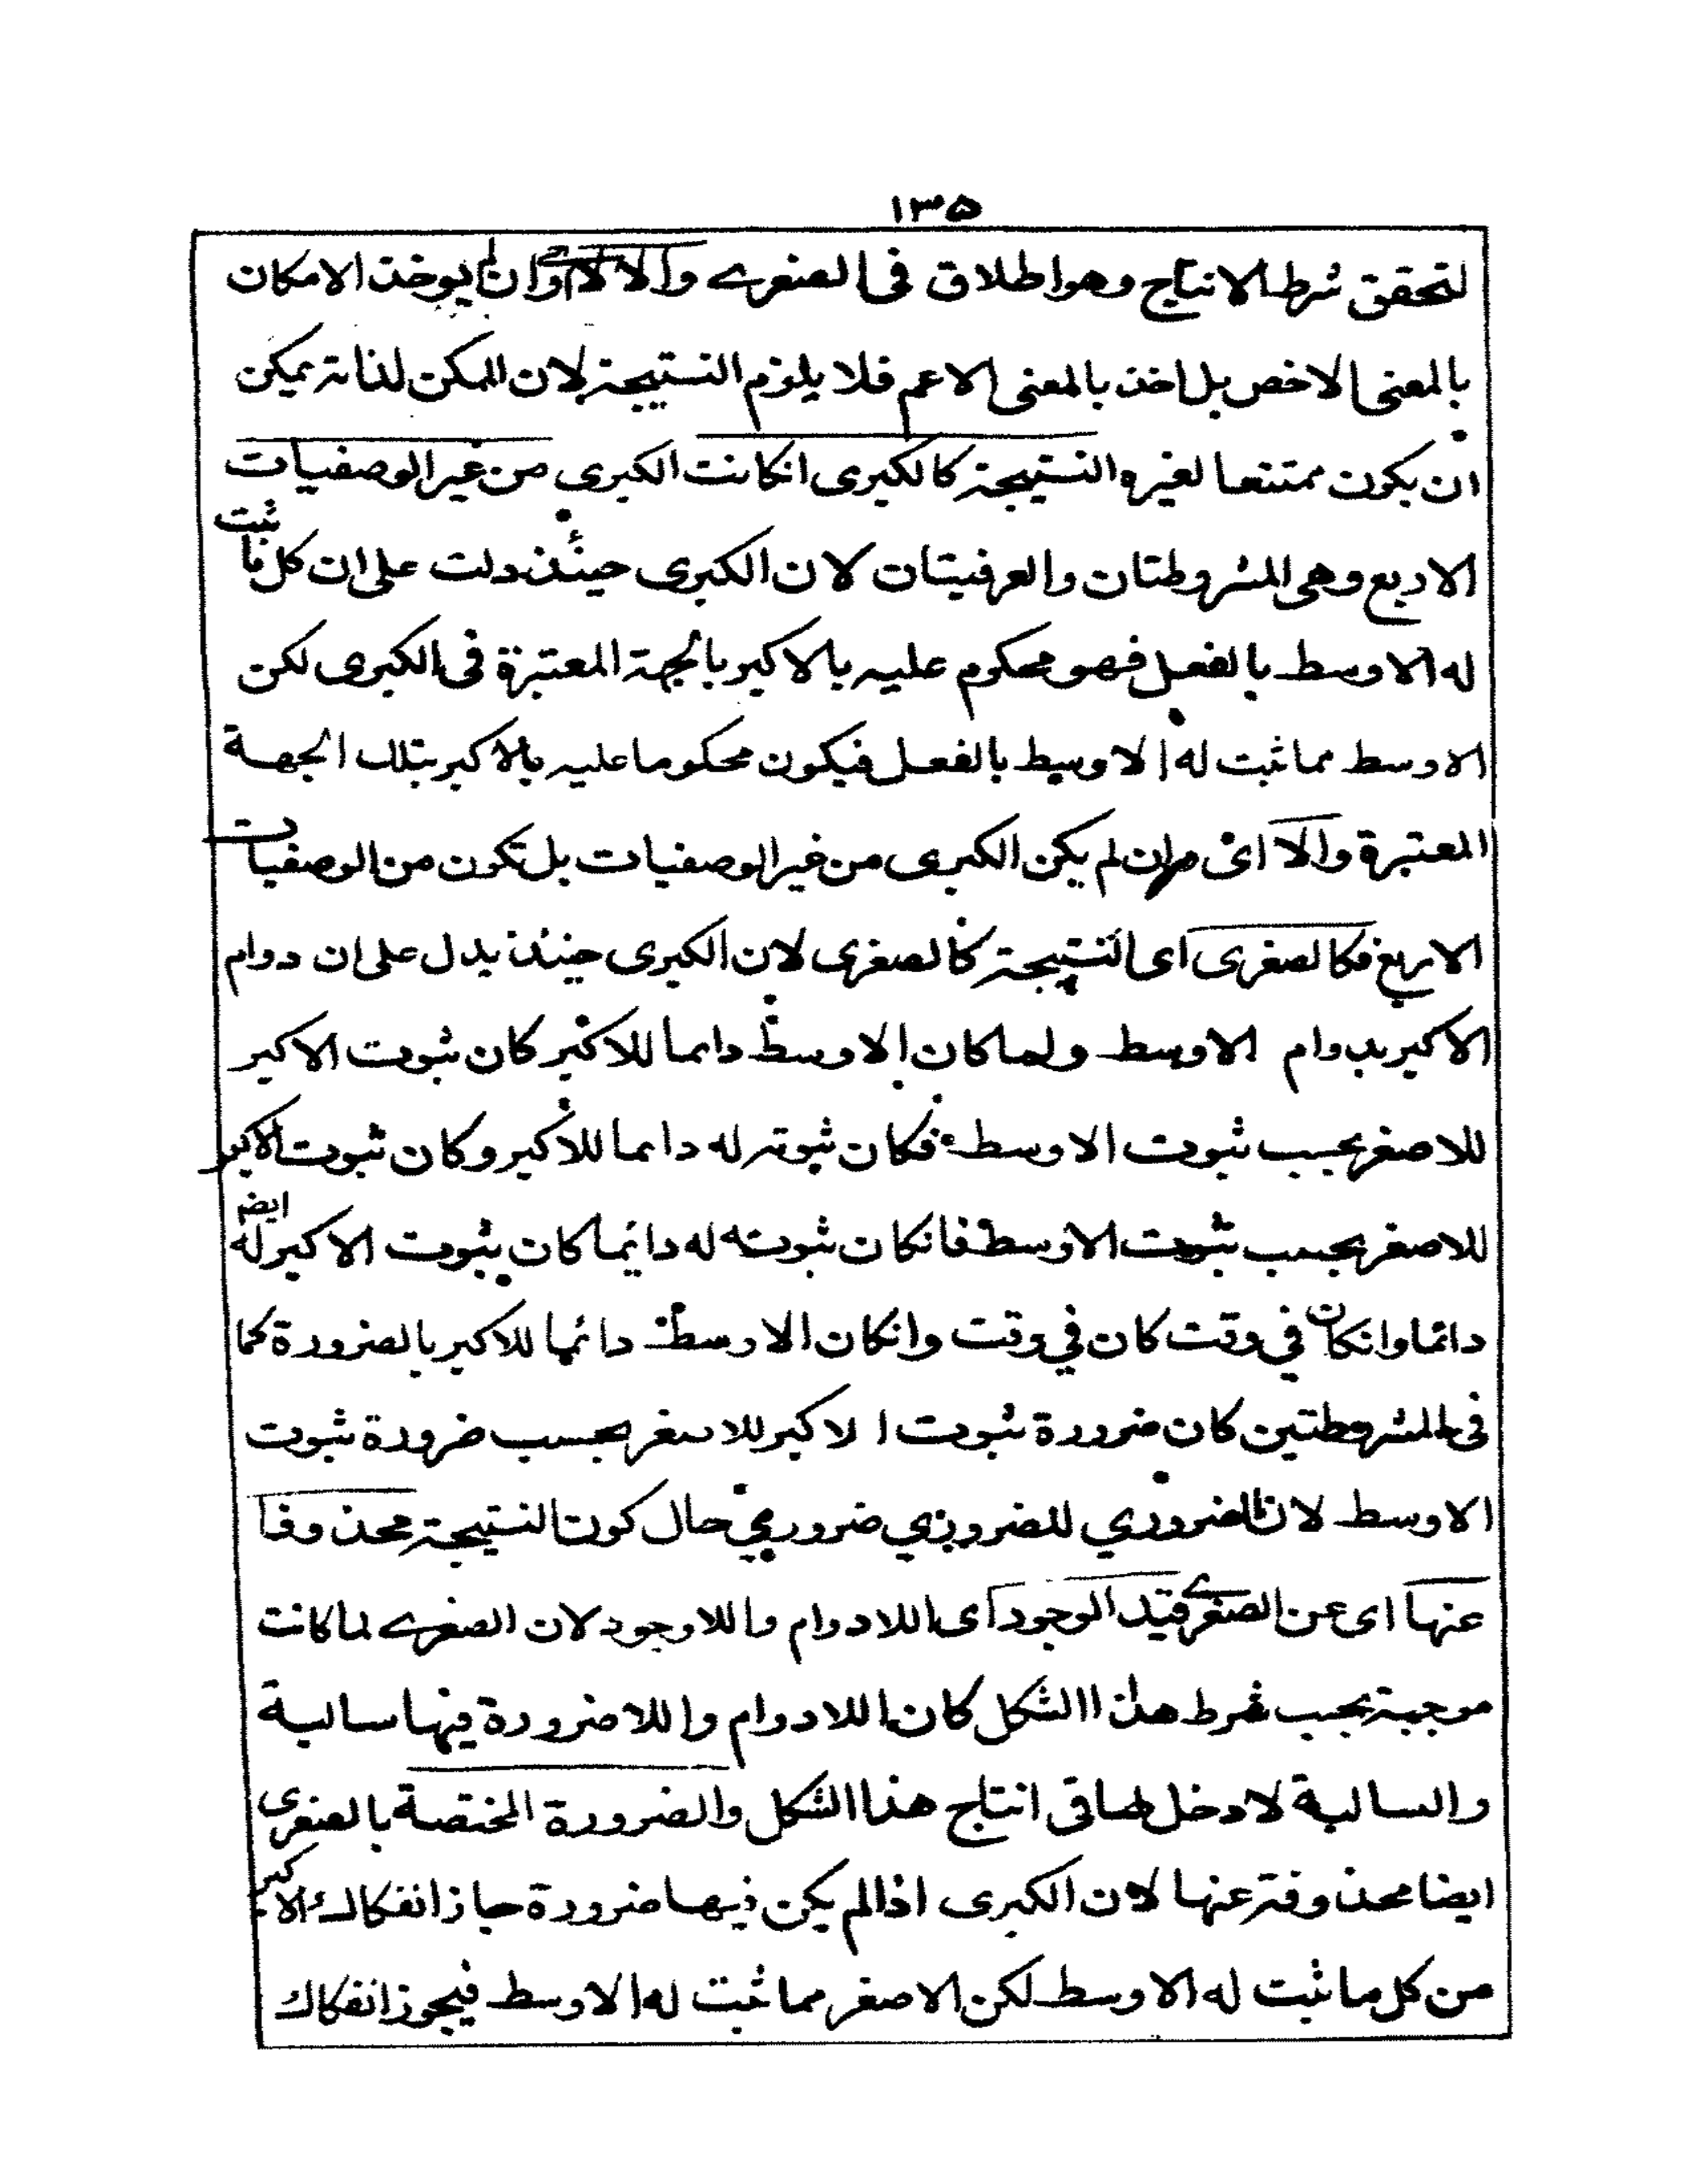 ١٣۵
لتحقق شرط الانتاج وهو اطلاق فى الصغرے والا لا اى وان لم يوخذ الامكان
بالمعنى الاخص بل اخذ بالمعنى الاعم فلا يلزم النتيجة لان الممكن لذاته يمكن
ان يكون ممتنعا لغيره النتيجة كالكبرى انكانت الكبرى من غير الوصفيات
الاربع وهى المشروطتان والعرفيتان لان الكبرى حينئذ دلت على ان كل ما ثبت
له الاوسط بالفعل فهو محكوم عليه بالاكبر بالجهة المعتبرة فى الكبرى لكن
الاوسط مما ثبت له الاوسط بالفعل فيكون محكوما عليه بالاكبر بتلك الجهة
المعتبرة والا اى وان لم يكن الكبرى من غير الوصفيات بل تكون من الوصفيات
الاربع فكالصغرى اى النتيجة كالصغرى لان الكبرى حينئذ يدل على ان دوام
الاكبر بدوام الاوسط ولما كان الاوسط دايما للاكبر كان ثبوت الاكبر
للاصغر بحسب ثبوت الاوسط فكان ثبوته له دايما للاكبر وكان ثبوت الاكبر
للاصغر بحسب ثبوت الاوسط فانكان ثبوته له دائما كان ثبوت الاكبر له ايضا
دائما وانكان في وقت كان في وقت وانكان الاوسط دائما للاكبر بالضرورة كما
فى المشروطتين كان ضرورة ثبوت الاكبر للاصغر بحسب ضرورة ثبوت
الاوسط لان الضروري للضروري ضروري حال كون النتيجة محذوفا
عنها اى عن الصغرے قيد الوجود اى اللادوام واللاوجود لان الصغرے لما كانت
موجبة بحسب شرط هذا الشكل كان اللادوام واللاضرورة فيها سالبة
والسالبة لا دخل لها فى انتاج هذا الشكل والضرورة المختصة بالصغرى
ايضا محذوفة عنها لان الكبرى اذا لم يكن فيها ضرورة جاز انفكاك الاكبر
من كل ما ثبت له الاوسط لكن الاصغر مما ثبت له الاوسط فيجوز انفكاك